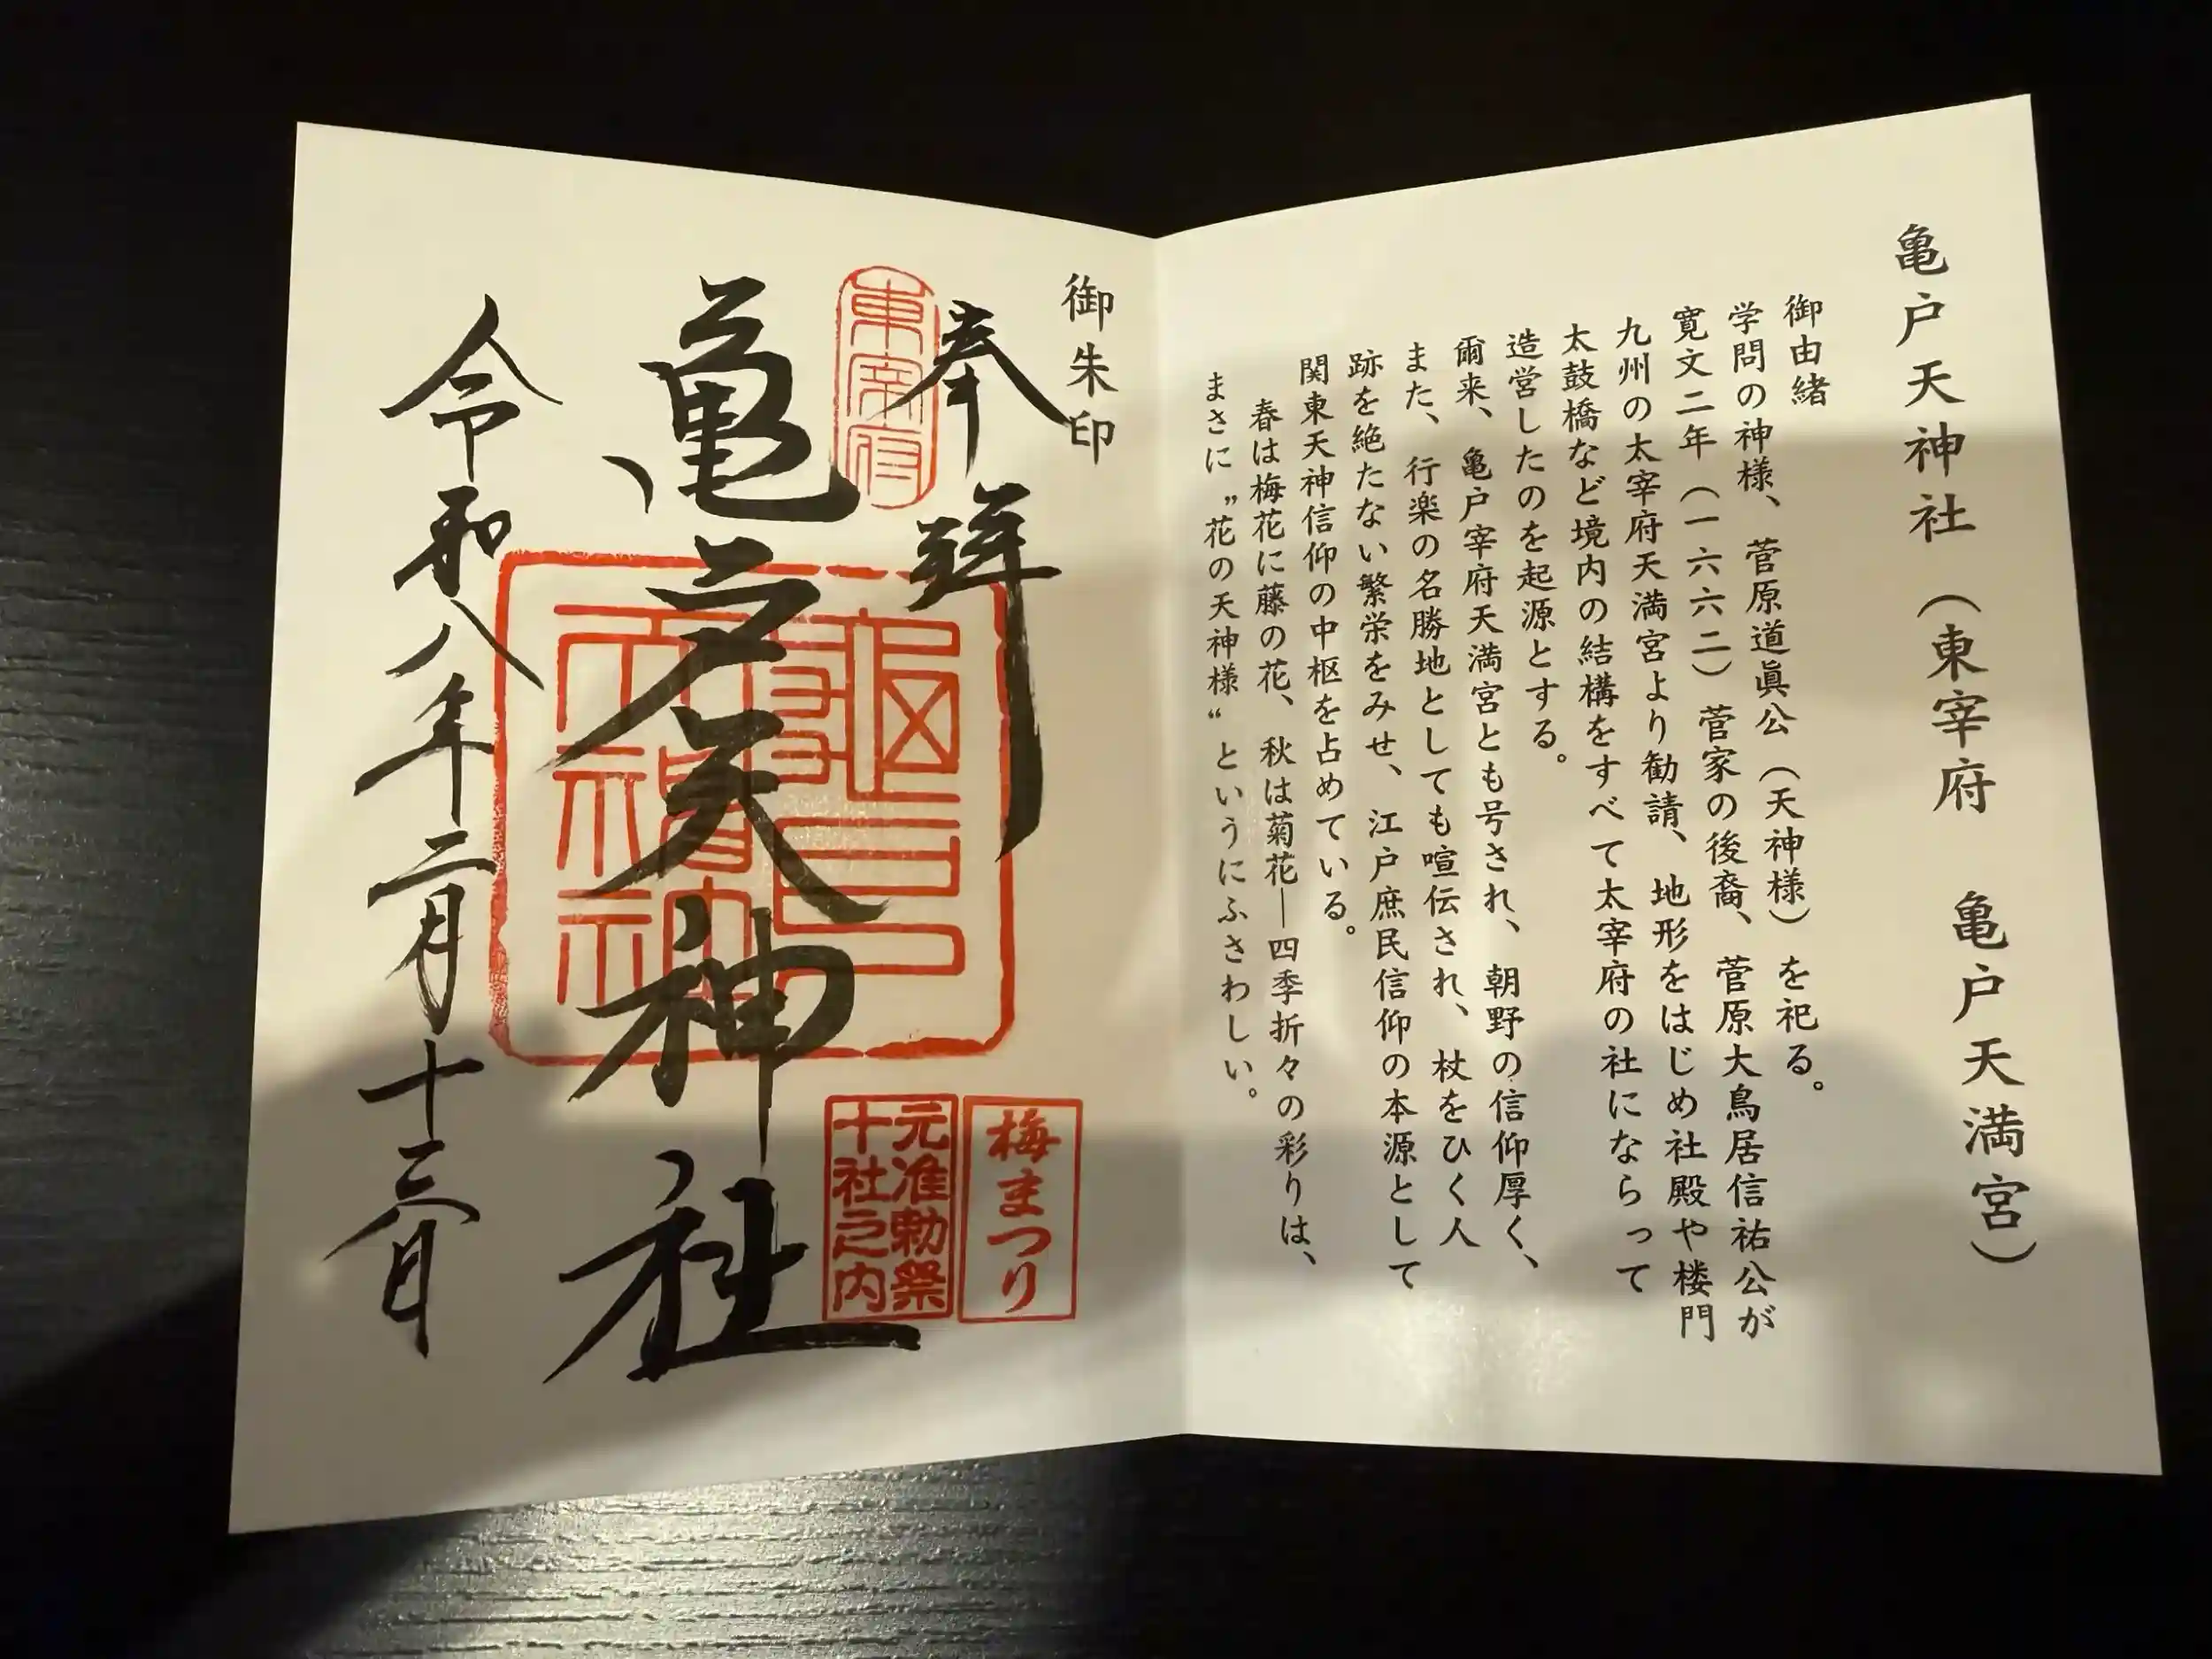 亀戸天神社（東宰府　亀戸天満宮）
御由緒
学問の神様、菅原道眞公（天神様）を祀る。
寛文二年（一六六二）菅家の後裔、菅原大鳥居信祐公が
九州の太宰府天満宮より勧請、地形をはじめ社殿や楼門
太鼓橋など境内の結構をすべて太宰府の社にならって
造営したのを起源とする。
爾来、亀戸宰府天満宮とも号され、朝野の信仰厚く、
また、行楽の名勝地としても喧伝され、杖をひく人
跡を絶たない繁栄をみせ、江戸庶民信仰の本源として
関東天神信仰の中枢を占めている。
春は梅花に藤の花、秋は菊花―四季折々の彩りは、
まさに〝花の天神様〟というにふさわしい。
御朱印
奉拝
東宰府
亀戸天神社
亀戸天神社
梅まつり
元准勅祭
十社之内
令和八年二月十三日